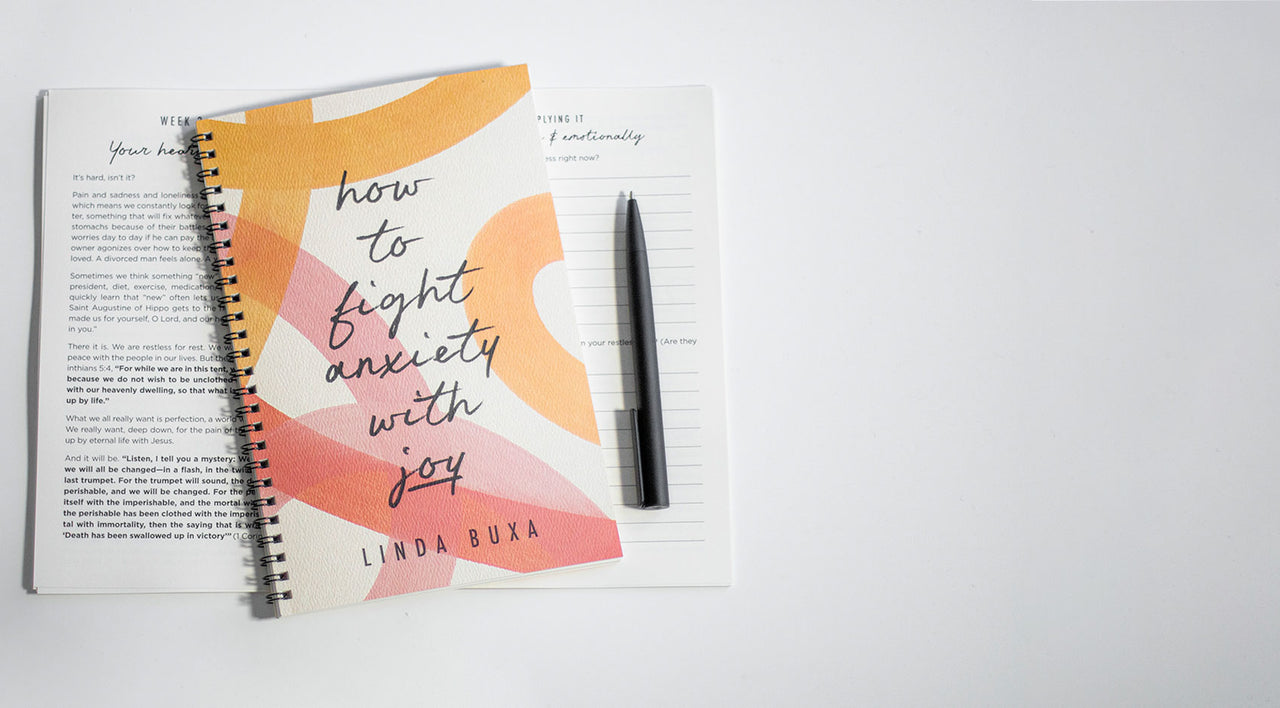 WEEK
Your
It's hard, isn't it?
Pain and sadness and loneliness
which means we constantly look for
ter, something that will fix
stomachs because of their battles
worries day to day if he can pay the
owner agonizes over how to keep
loved. A divorced man feels alone.
Sometimes we think something "new"
president, diet, exercise,
quickly learn that "new" often lets
Saint Augustine of Hippo gets to the
made us for yourself, O Lord, and our
in you."
There it is. We are restless for rest. We
peace with the people in our lives. But
inthians 5:4, "For while we are in this tent,
because we do not wish to be unclothed
with our heavenly dwelling, so that what
up by life."
What we all really want is perfection, a world
We really want, deep down, for the pain of
up by eternal life with Jesus.
And it will be. "Listen, I tell you a mystery: We
we will all be changed—in a flash, in the
last trumpet. For the trumpet will sound, the
perishable, and we will be changed. For the
itself with the imperishable, and the mortal
the perishable has been clothed with the
tal with immortality, then the saying that is
'Death has been swallowed up in victory'" (1
how
to
fight
anxiety
with
joy
LINDA BUXA
PLYING IT
& emotionally
ess right now?
n your restless (Are they